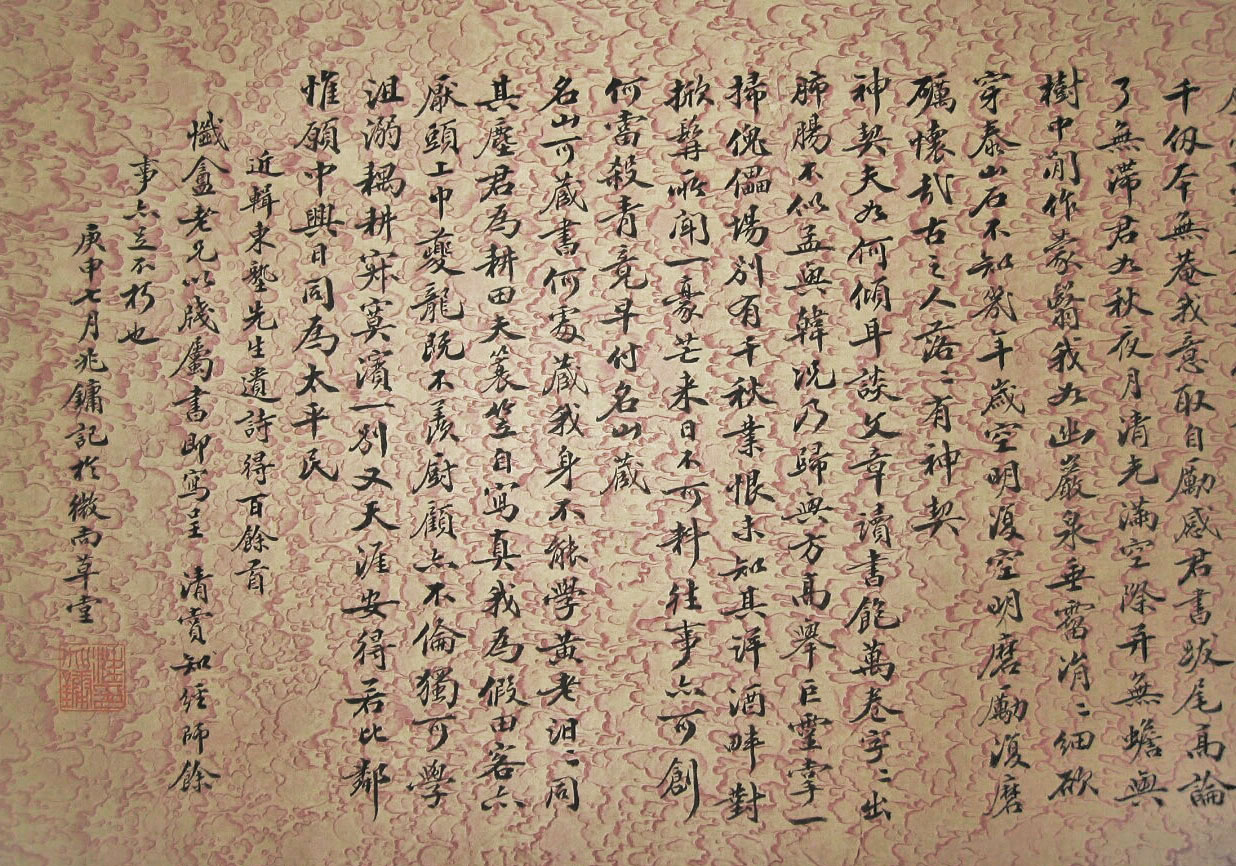 千仞本無菴我意取自勵感君書跋尾高論
了無滯君如秋夜月清光滿空際并無蟾與
樹中間作豪翳我如幽巖泉垂霤涓〻細欲
穿泰山石不知幾年歲空明復空明磨勵復磨
礪懷哉古之人落〻有神契
神契夫如何傾耳談文章讀書飽萬卷字〻出
肺腸不似孟與韓況乃歸與方高舉巨靈掌一
掃傀儡場別有千秋業恨未知其詳酒畔對
掀髯所聞一豪芒来日不可料往事亦可創
何當殺青竟早付名山藏
名山可藏書何處藏我身不能學黃老汨〻同
其塵君為耕田夫蓑笠自寫真我為假田客亦
厭頭上巾夔龍既不羨厨顧亦不倫獨可學
沮溺耦耕寂寞濱一別又天涯安得若比鄰
惟願中興日同為太平民
近輯東塾先生遺詩得百餘首
懺盦老兄以牋屬書即寫呈 清賞知經師餘
事亦立不朽也
庚申七月兆鏞記於微尚草堂